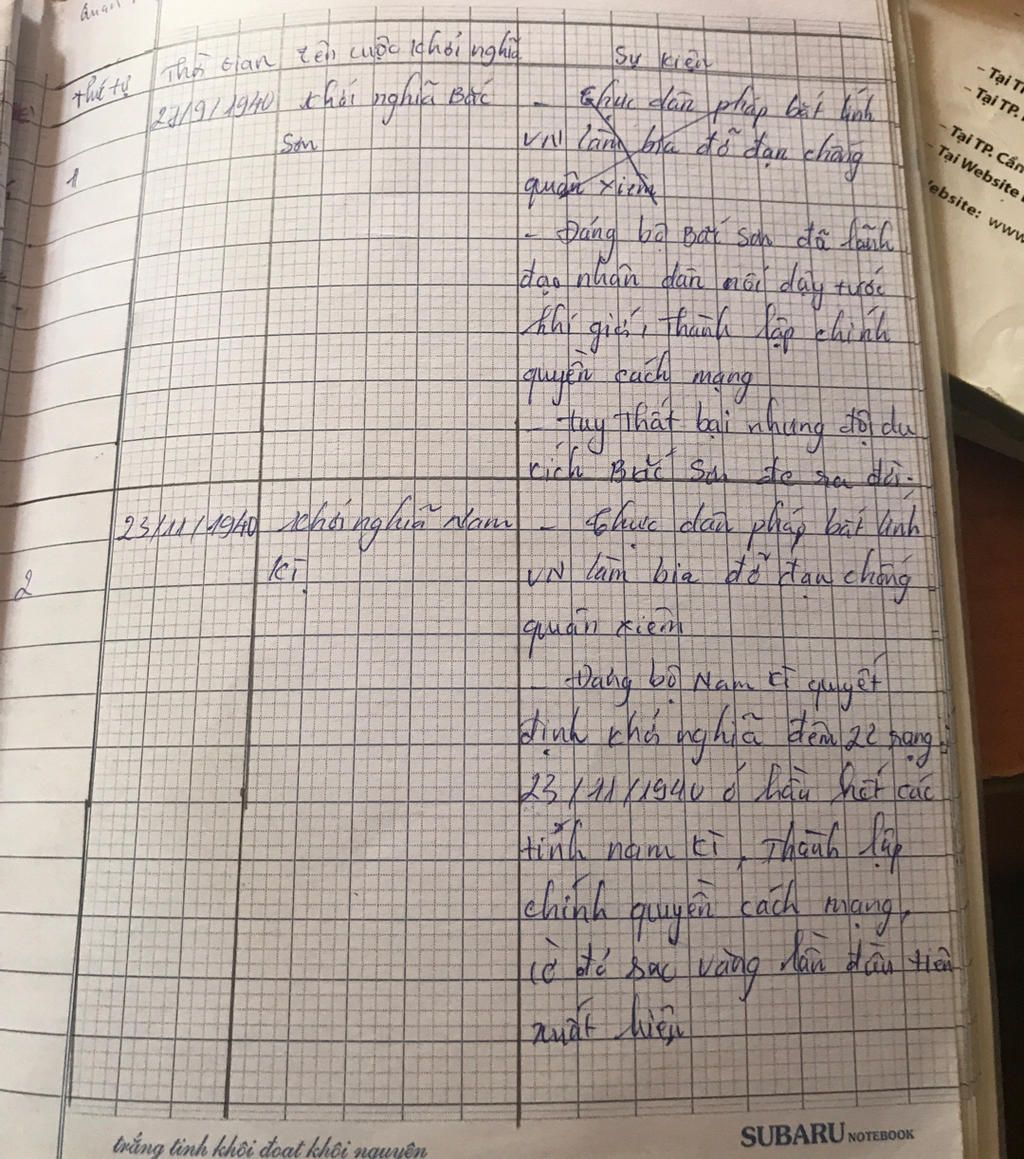 Quan
Thứ tự Thời gian tên cuộc khởi nghĩa Sự kiện
27/9/1940 khởi nghĩa Bắc - Thực dân pháp bắt lính
Sơn VN làm bia đỡ đạn chống
1
quân xiêm
- Đảng bộ Bắc Sơn đã lãnh
đạo nhân dân nổi dậy tước
khí giới, Thành lập chính
quyền cách mạng
- tuy Thất bại nhưng đội du
kích Bắc Sơn đc ra đời.
23/11/1940 khởi nghĩa Nam - Thực dân pháp bắt lính
2 kì VN làm bia đỡ đạn chống
quân xiêm
- Đảng bộ Nam kì quyết
định khởi nghĩa đêm 22 rạng
23/11/1940 ở hầu hết các
tỉnh nam kì, Thành lập
chính quyền cách mạng,
cờ đỏ sao vàng lần đầu tiên
xuất hiện
trắng tinh khôi đoạt khôi nguyên
SUBARU NOTEBOOK
- Tại T
- Tại TP.
- Tại TP. Cần
- Tại Website
ebsite: www